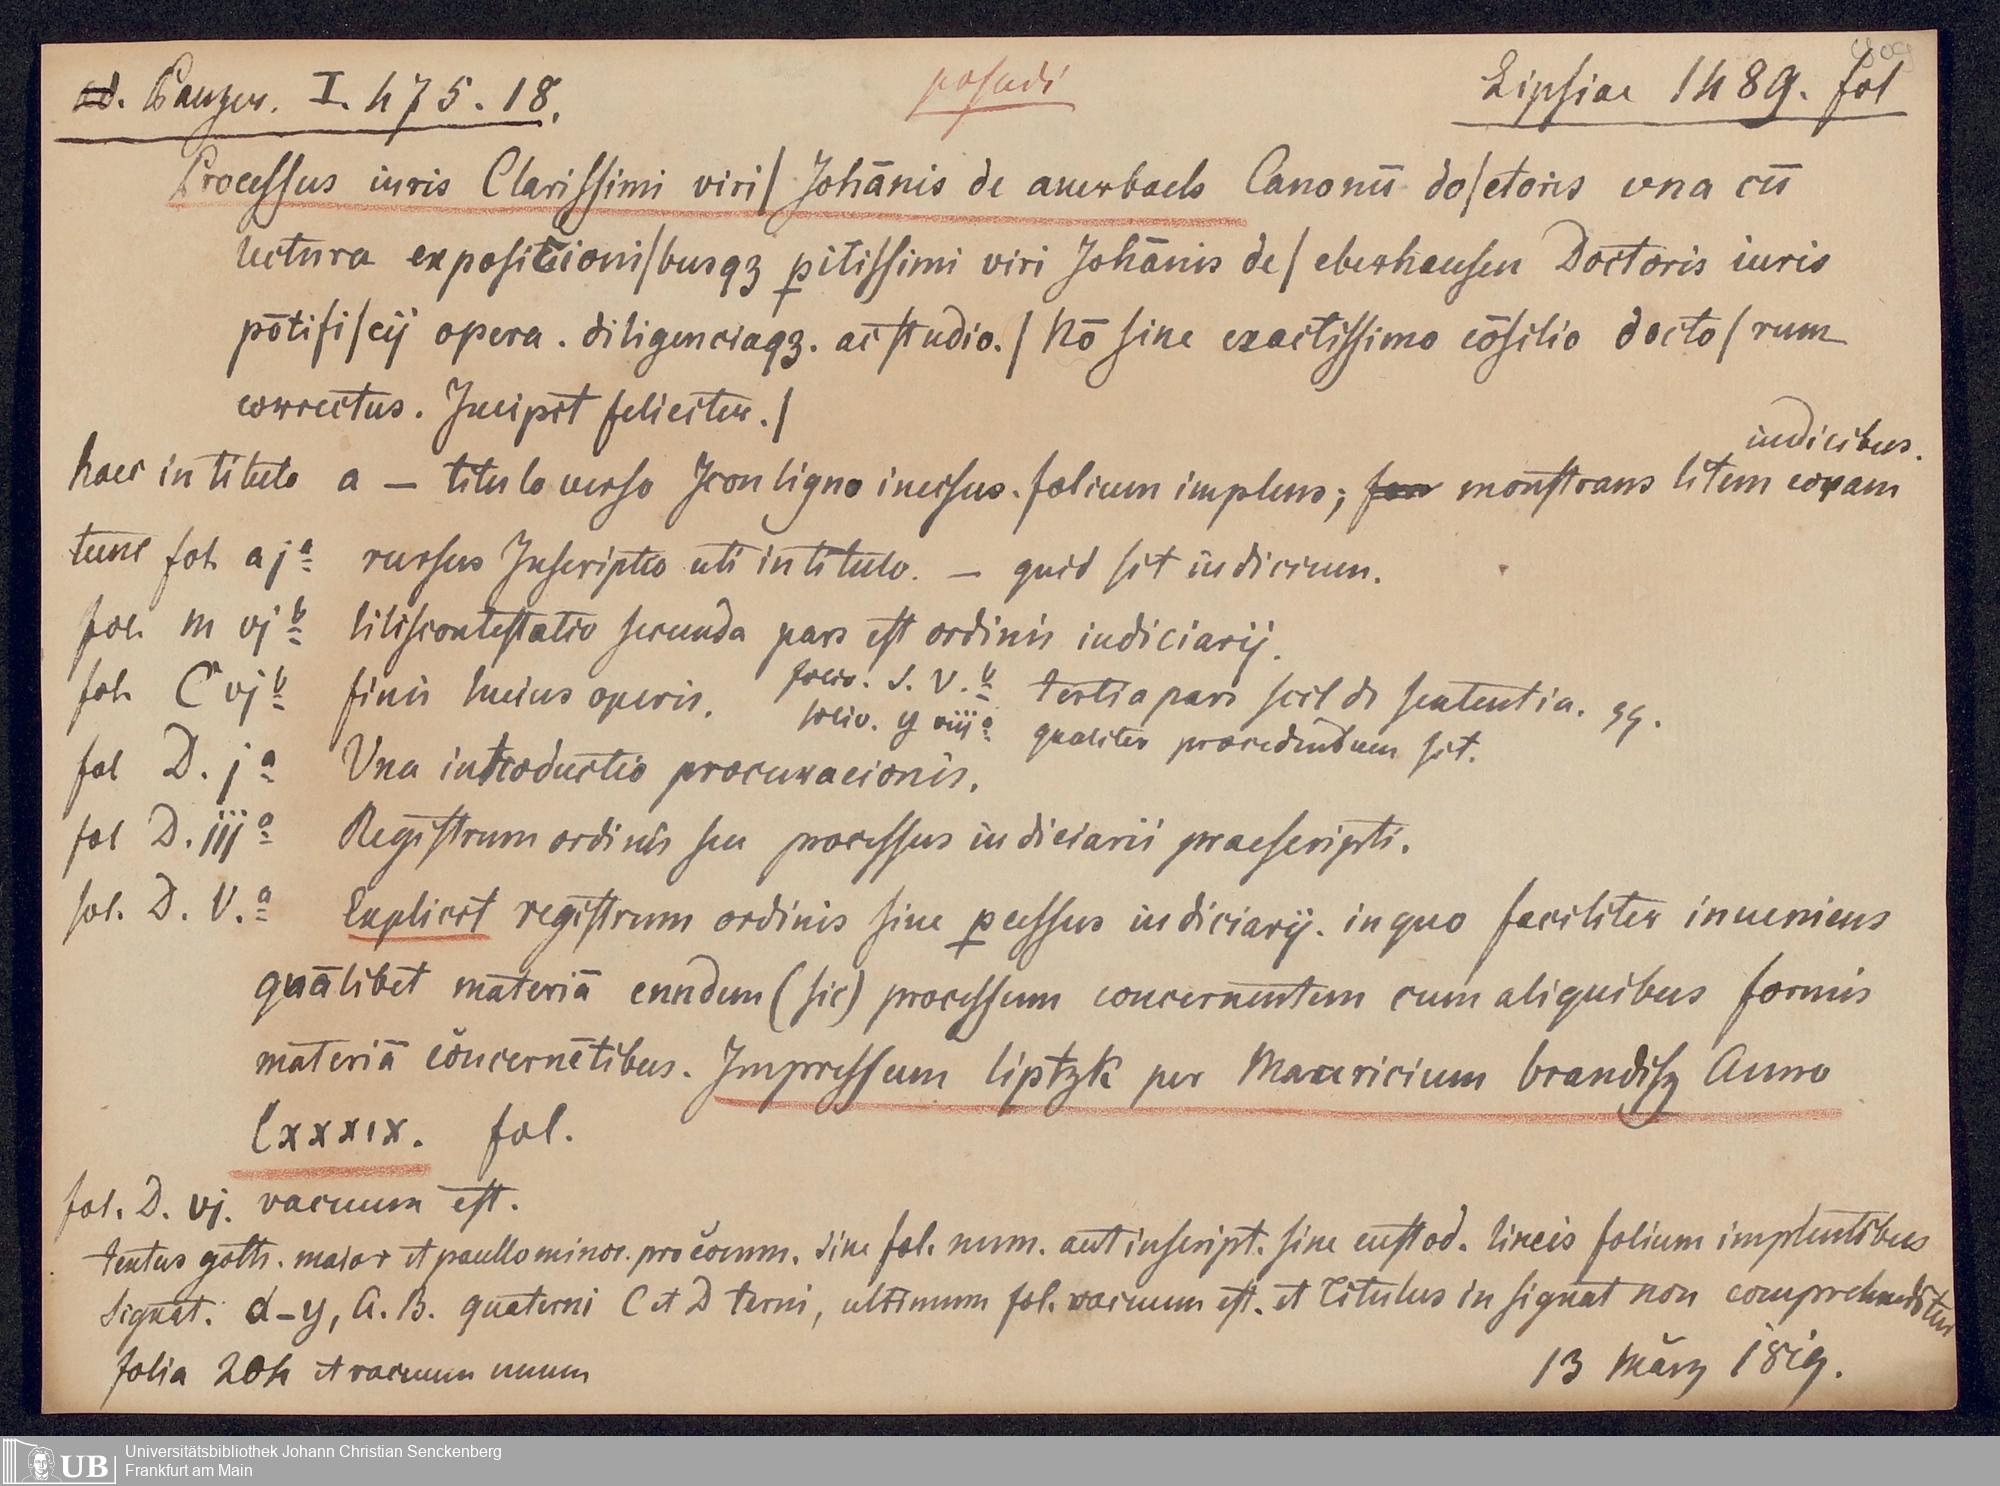 ad. Panzer. I. 475. 18.
posedi
Lipsiae 1489. fol
Processus iuris Clarissimi viri/ Johānis de auerbach Canonū do/ctoris vna cū
lectura exposicioni/busqꝫ ꝑitissimi viri Johānis de/ eberhausen Doctoris iuris
pōtifi/cij opera. diligenciaqꝫ. ac studio./ Nō sine exactissimo cōsilio docto/rum
correctus. Incipit feliciter./
haec in titulo a — titulo verso Icon ligno incisus. folium implens; monstrans litem coram iudicibus.
tunc fol. a jª rursus Inscriptio uti in titulo. — quid sit iudicium.
fol. m vj b litiscontestatio secunda pars est ordinis iudiciarij.
fol. C vj b finis huius operis. folio. S. V. b tertia pars scil de sententia. qq.
folio. y viij a qualiter procedendum sit.
fol D. j a Vna introductio procuracionis.
fol D. iij a Registrum ordinis seu processus iudiciarii praescripti.
fol. D. V. a Explicit registrum ordinis siue ꝓcessus iudiciarij. in quo faciliter inueniens
quālibet materiā enndem (sic) processum concernentem cum aliquibus formis
materiā cōncernētibus. Impressum liptzk per Mauricium brandisz Anno
lxxxix. fol.
fol. D. vj. vacuum est.
textus goth. maior et paullo minor. pro cōmm. sine fol. num. aut inscript. sine custod. lineis folium implentibus
Signat. a-y, A. B. quaterni C et D terni, ultimum fol. vacuum est. et Titulus in signat non comprehenditur
folia 204 et vacuum unum
13 März 1819.
Universitätsbibliothek Johann Christian Senckenberg
UB Frankfurt am Main